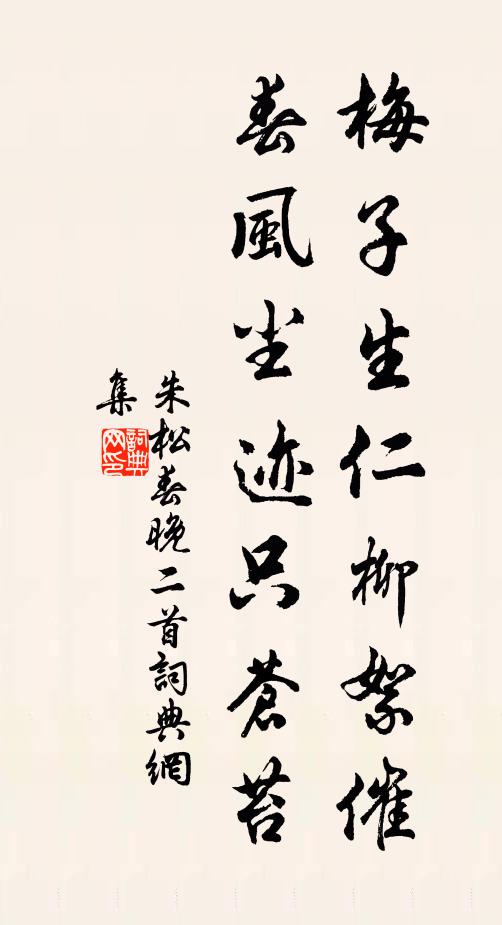 梅子生仁柳絮催
春風尘迹只蒼苔
朱松春晚二首詞典網
集
詞典网印